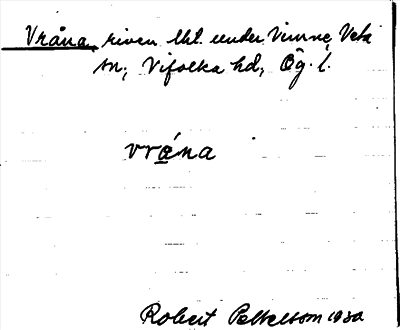 Vråna, riven lht. under Vinne, Veta
sn, Vifolka hd, Ög. l.
vrána
Robert Pettersson 1930